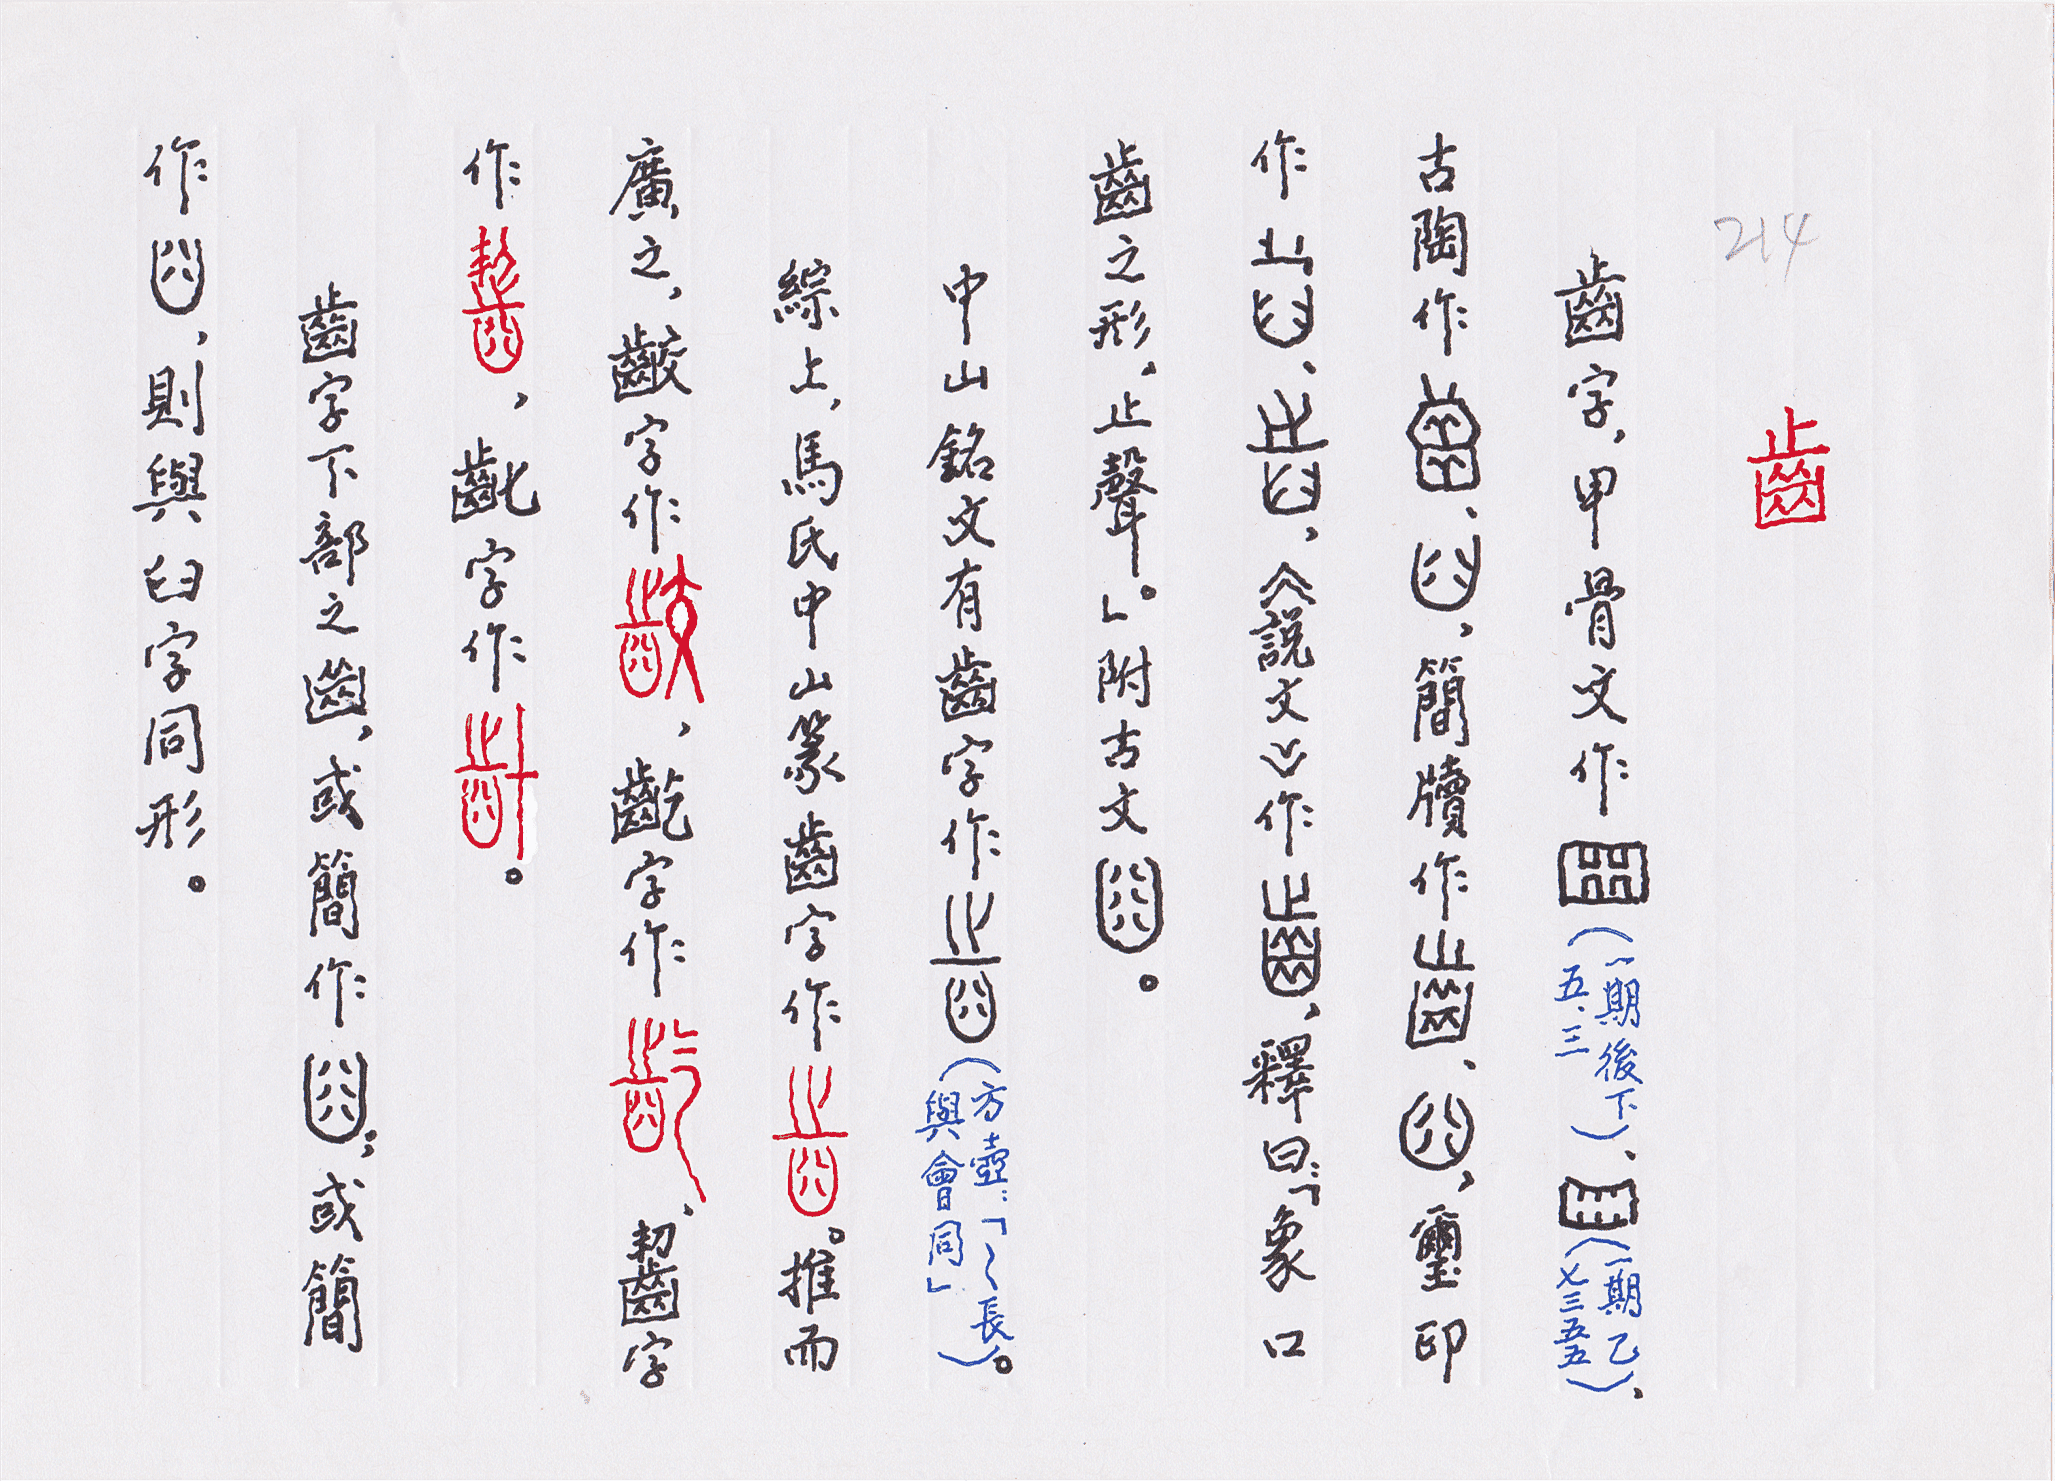 214
齒
齒字，甲骨文作（一期後下五．三）、（一期乙七三五五）、
古陶作、，簡牘作、，璽印
作、，《說文》作，釋曰：「象口
齒之形，止聲。」附古文。
中山銘文有齒字作（方壺：「～長與會同」）。
綜上，馬氏中山篆齒字作。推而
廣之，齩字作，齕字作，齧字
作，齔字作。
齒字下部之，或簡作；或簡
作，則與臼字同形。